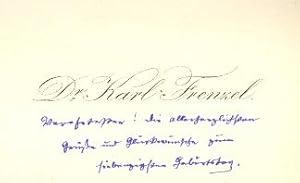 Dr. Karl Frenzel.
Verehrtester! Die allerherzlichsten
Grüße und Glückwünsche zum
siebenzigsten Geburtstag.